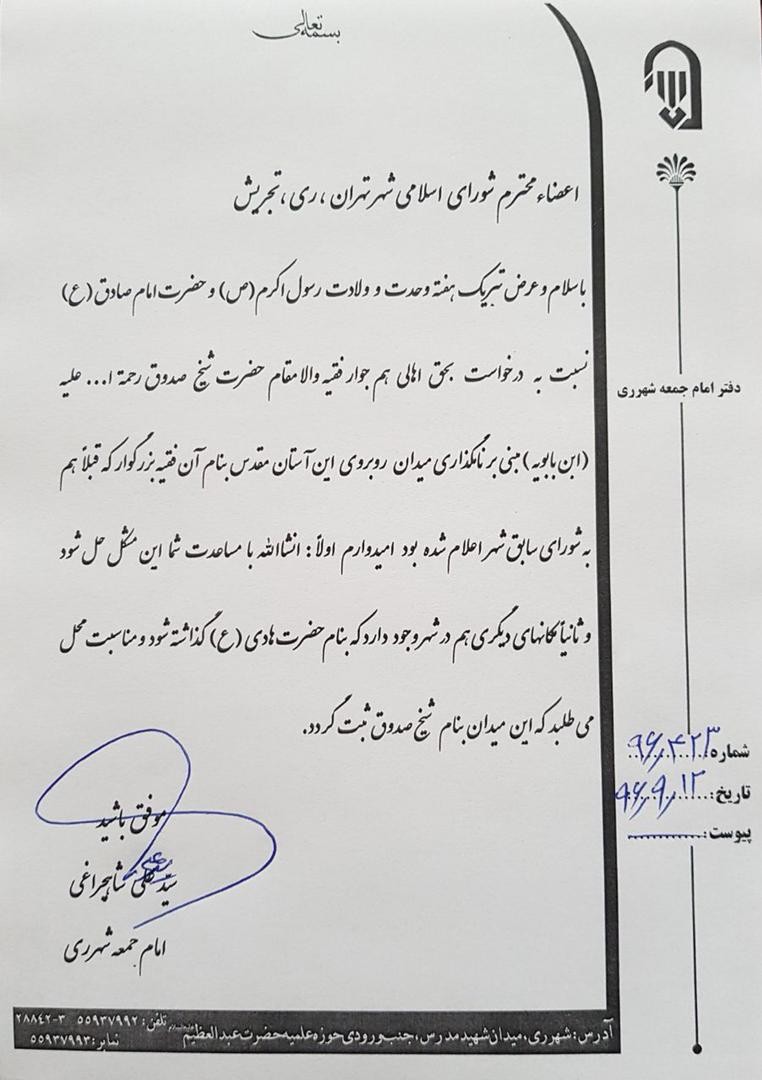 بسمه تعالی
دفتر امام جمعه شهرری
شماره: ۹۶٫۴۲۳
تاریخ: ۹۶٫۹٫۱۲
پیوست:
اعضاء محترم شورای اسلامی شهر تهران ، ری ، تجریش
با سلام و عرض تبریک هفته وحدت و ولادت رسول اکرم (ص) و حضرت امام صادق (ع)
نسبت به درخواست بحق اهالی هم جوار فقیه والامقام حضرت شیخ صدوق رحمة ا... علیه
(ابن بابویه) مبنی بر نامگذاری میدان روبروی این آستان مقدس بنام آن فقیه بزرگوار که قبلاً هم
به شورای سابق شهر اعلام شده بود امیدوارم اولاً : انشاالله با مساعدت شما این مشکل حل شود
و ثانیاً مکانهای دیگری هم در شهر وجود دارد که بنام حضرت هادی (ع) گذاشته شود و مناسبت محل
می طلبد که این میدان بنام شیخ صدوق ثبت گردد.
موفق باشید
سید علی شاهچراغی
امام جمعه شهرری
آدرس: شهرری، میدان شهید مدرس، جنب ورودی حوزه علمیه حضرت عبدالعظیم علیه‌السلام
تلفن: ۵۵۹۳۷۹۹۲ ۳-۲۸۸۴۲
نمابر: ۵۵۹۳۷۹۹۳